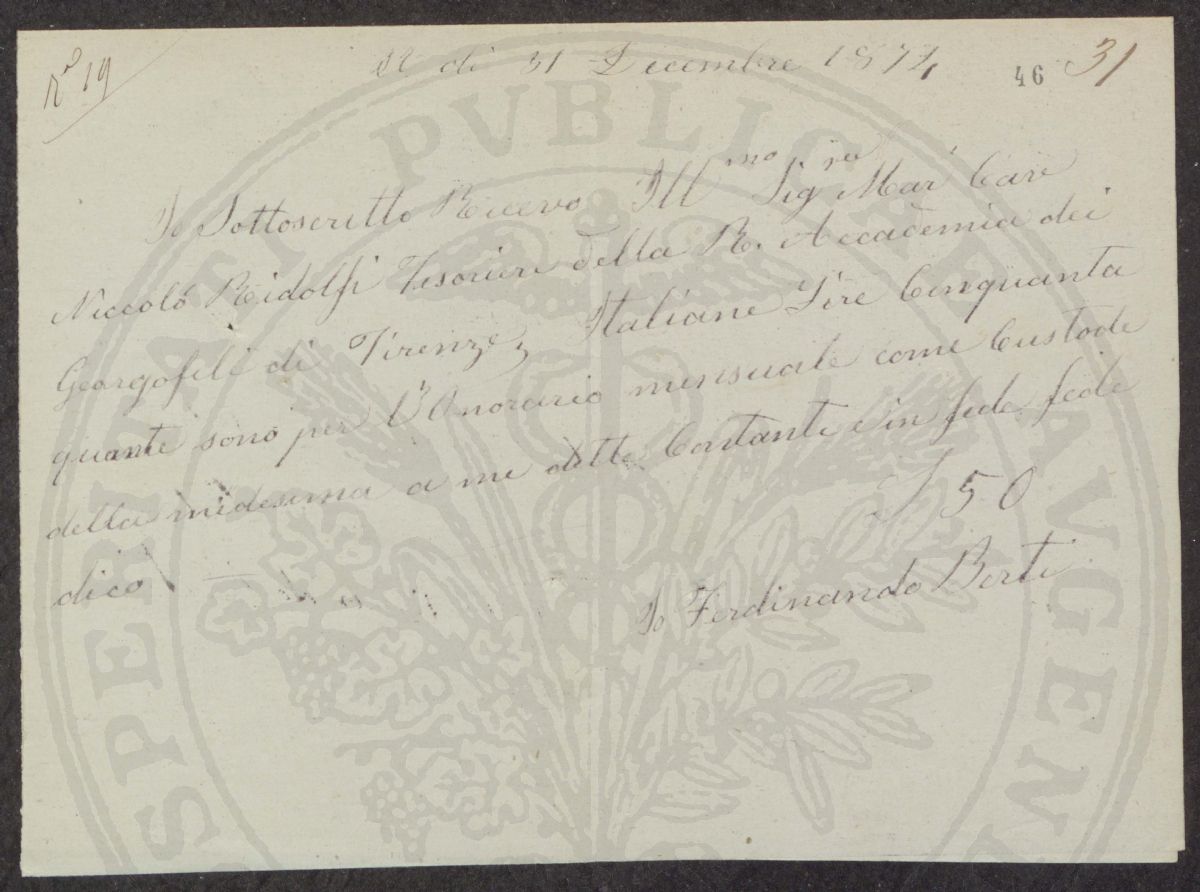 N.° 19
A di 31 Decembre 1874
46
31
Io Sottoscritto Ricevo Ill.mo Sig.re Mar. Cave
Niccoló Ridolfi Tesorieri della R. Accademia dei
Geargofili di Firenze, Italiane Lire Cinquanta
quante sono per l'Onorario mensuale come Custode
della midesima a me dette Contante e in fede fede
dico
£ 50
Io Ferdinando Berti
PROSPERITATI PUBLICAE AUGENDAE